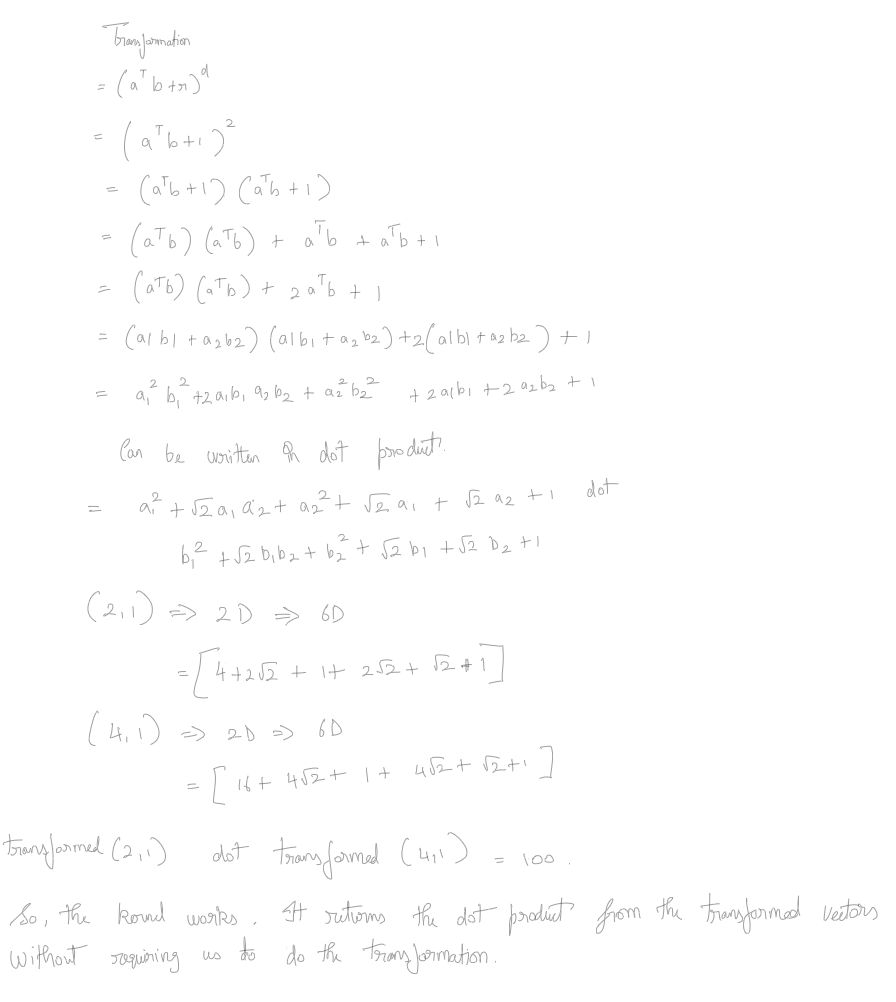 Transformation
= (aᵀb + r)ᵈ
= (aᵀb + 1)²
= (aᵀb + 1) (aᵀb + 1)
= (aᵀb) (aᵀb) + aᵀb + aᵀb + 1
= (aᵀb) (aᵀb) + 2aᵀb + 1
= (a1 b1 + a₂b2) (a1b₁ + a₂b₂) + 2(a1b1 + a₂b₂) + 1
= a₁² b₁² + 2a₁b₁ a₂b₂ + a₂²b₂² + 2a1b₁ + 2a₂b₂ + 1
Can be written in dot product.
= a₁² + √2a₁a₂ + a₂² + √2a₁ + √2a₂ + 1 dot
b₁² + √2b₁b₂ + b₂² + √2b₁ + √2b₂ + 1
(2,1) ⇒ 2D ⇒ 6D
= [4 + 2√2 + 1 + 2√2 + √2 + 1]
(4,1) ⇒ 2D ⇒ 6D
= [16 + 4√2 + 1 + 4√2 + √2 + 1]
transformed (2,1) dot transformed (4,1) = 100.
So, the kernel works. It returns the dot product from the transformed vectors
without requiring us to do the transformation.